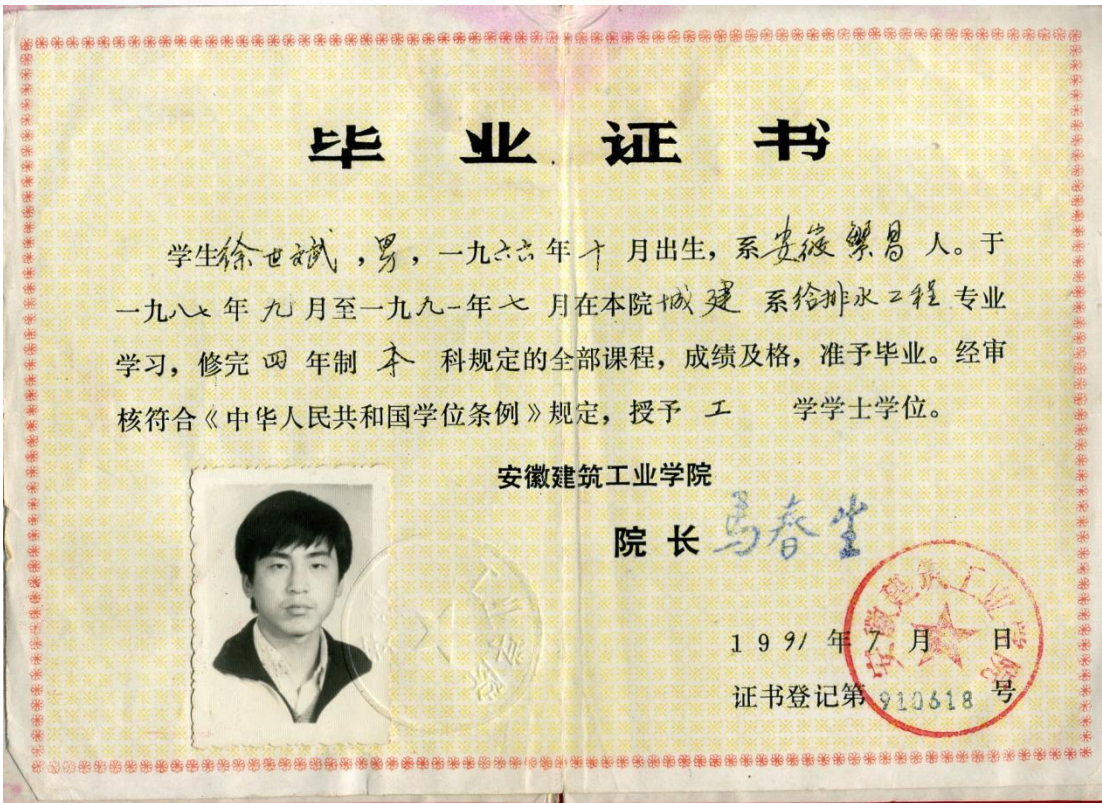 毕业证书
学生徐世斌，男，一九六六年十月出生，系安徽繁昌人。于
一九八七年九月至一九九一年七月在本院城建系给排水工程专业
学习，修完四年制本科规定的全部课程，成绩及格，准予毕业。经审
核符合《中华人民共和国学位条例》规定，授予工学学士学位。
安徽建筑工业学院
院长 马春生
安徽建筑工业学院
1991年7月 日
证书登记第910618号